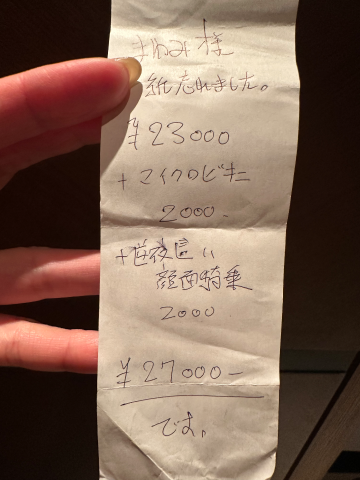 様
紙忘れました。
¥23000
+マイクロビキニ
2000.
+
顔面騎乗
2000
¥27000-
です。